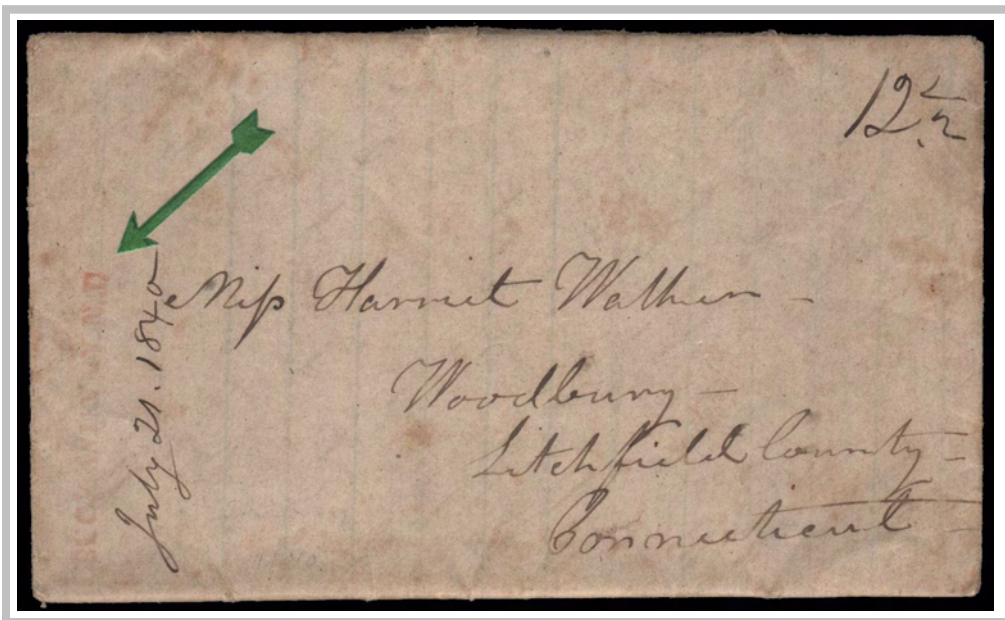 12 1/2
July 21. 1840
Miss Harriet Walker -
Woodbury -
Litchfield County -
Connecticut -